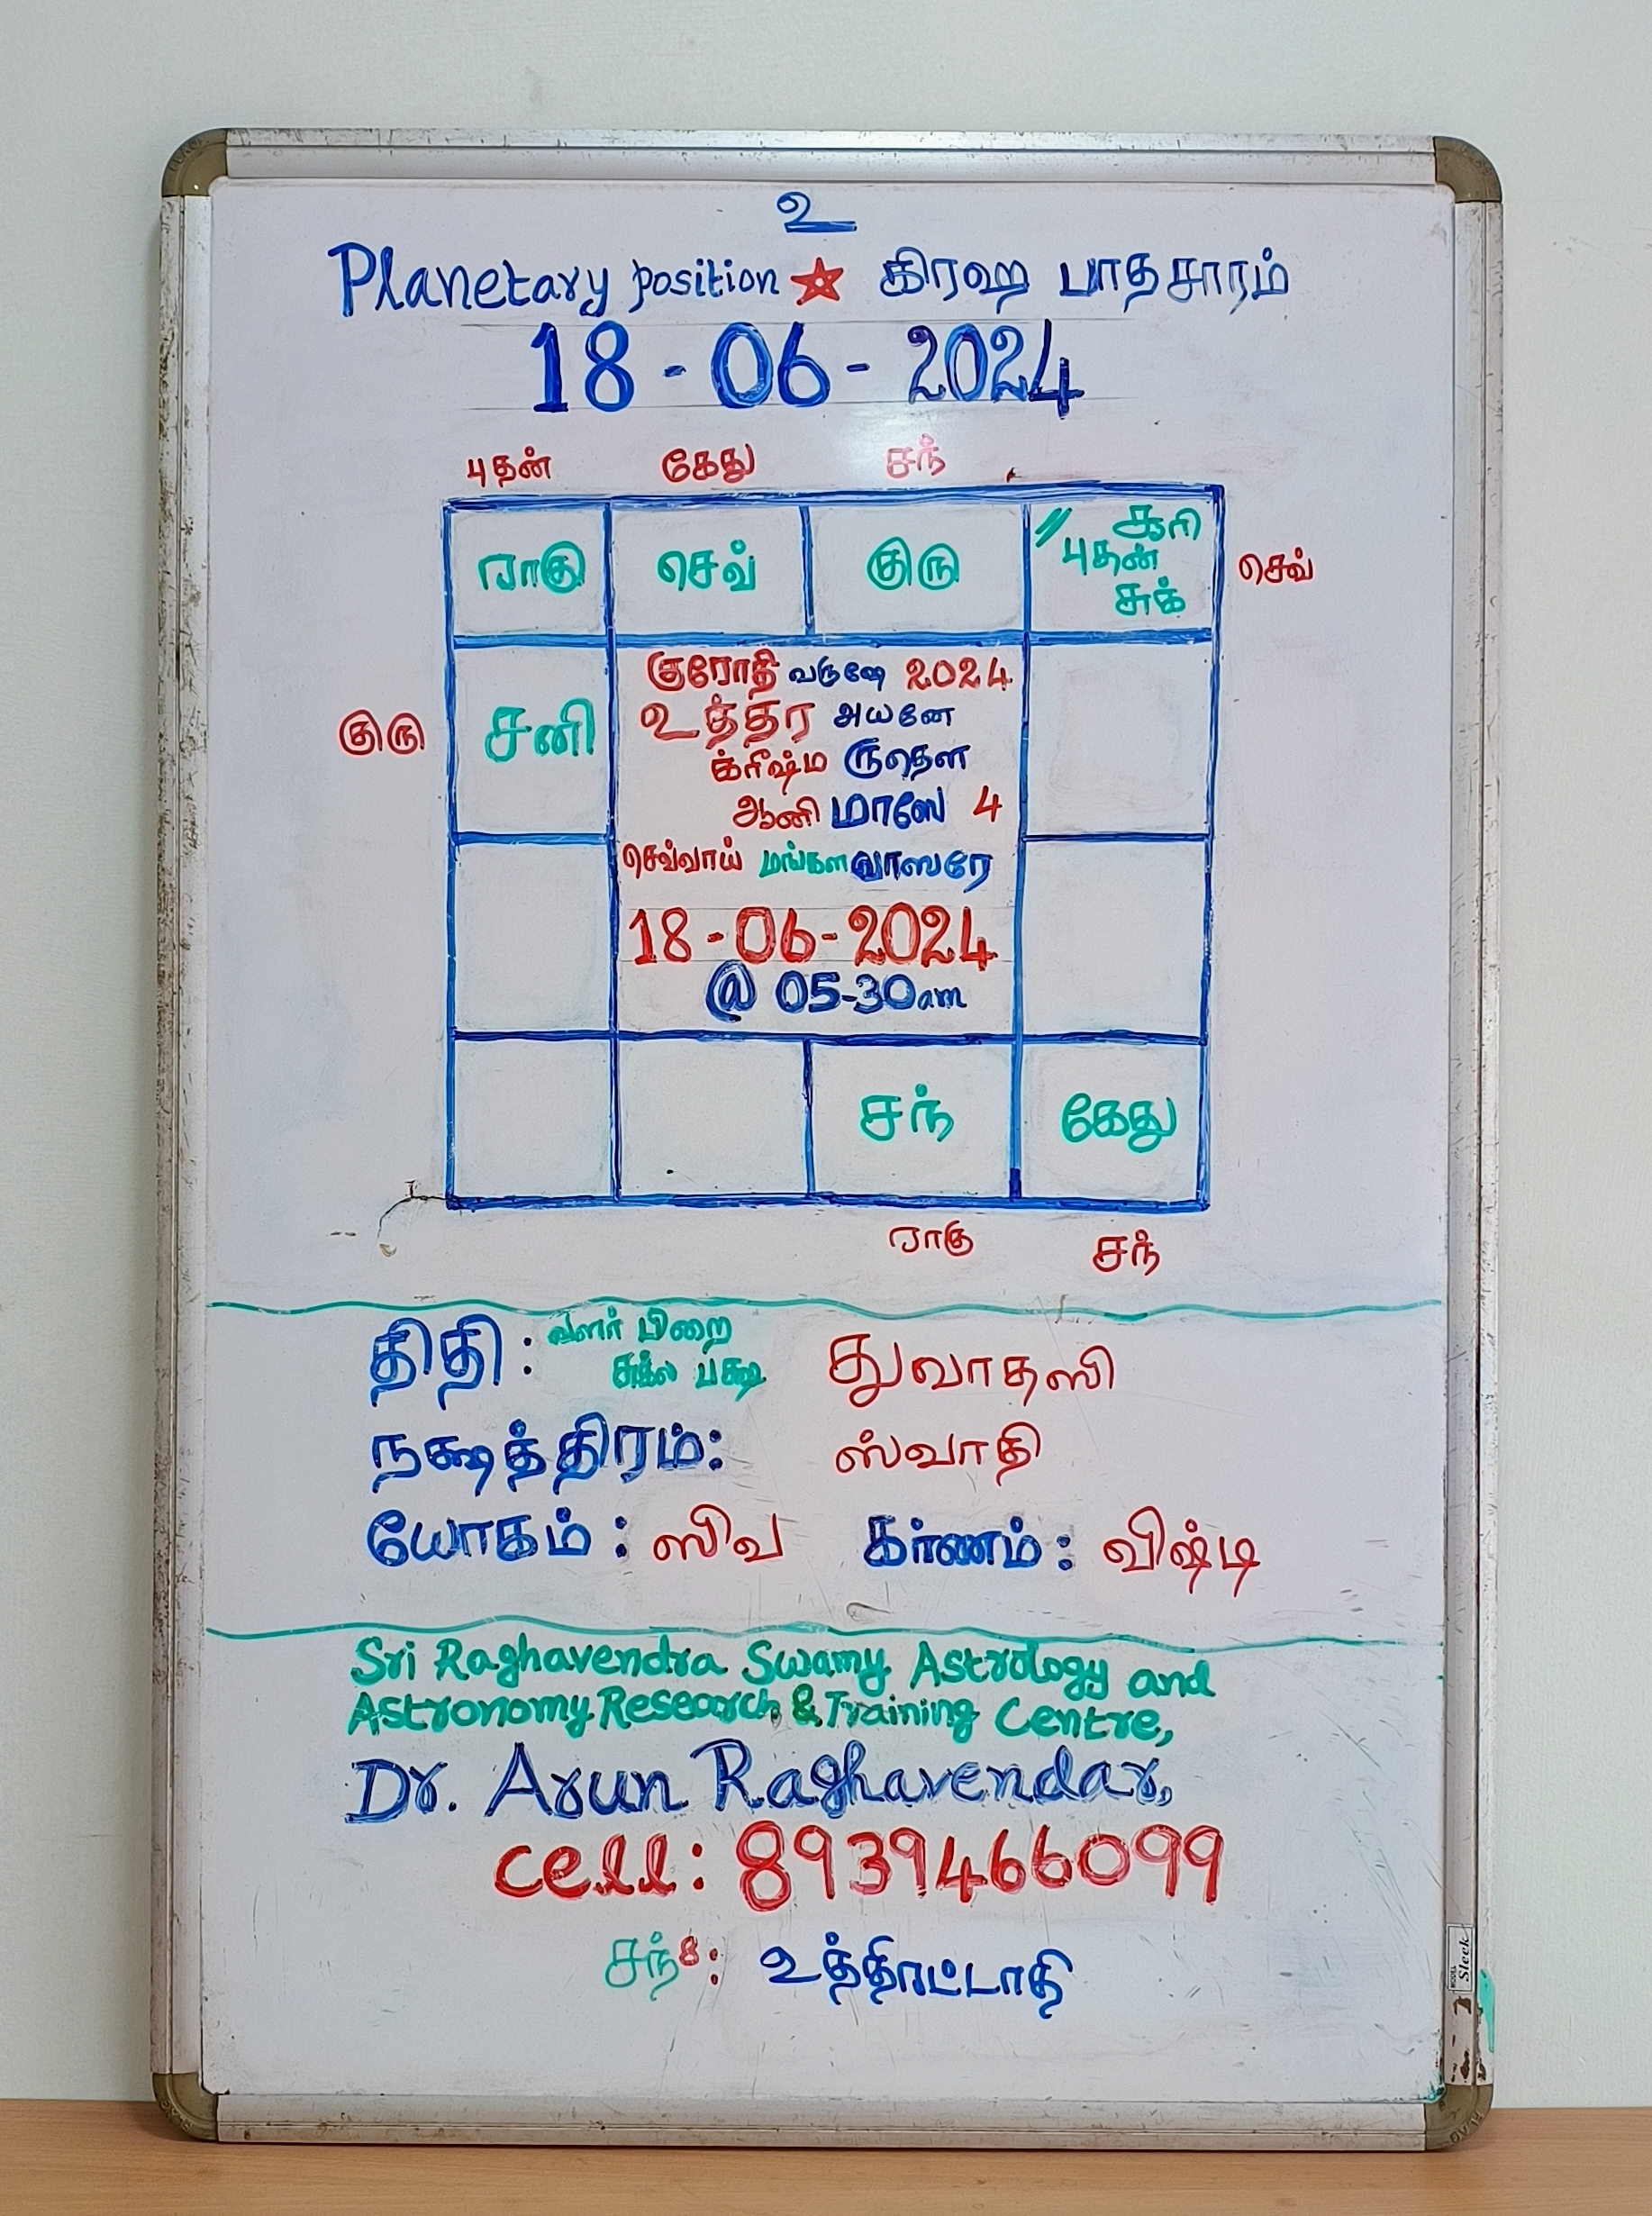 உ
Planetary position ☆ கிரஹ பாதசாரம்
18-06-2024
புதன் கேது சந்
ராகு செவ் குரு
// சூரி
புதன்
சுக்
செவ்
குரு
சனி
குரோதி வருஷே 2024
உத்தர அயனே
க்ரீஷ்ம ருதௌ
ஆனி மாஸே 4
செவ்வாய் மங்களவாஸரே
18-06-2024
@ 05-30am
சந் கேது
ராகு சந்
திதி: வளர் பிறை
சுக்ல பக்ஷ துவாதஸி
நக்ஷத்திரம்: ஸ்வாதி
யோகம்: ஸிவ கர்ணம்: விஷ்டி
Sri Raghavendra Swamy Astrology and
Astronomy Research & Training Centre,
Dr. Arun Raghavendar,
cell: 8939466099
சந்8: உத்திரட்டாதி
Sleek